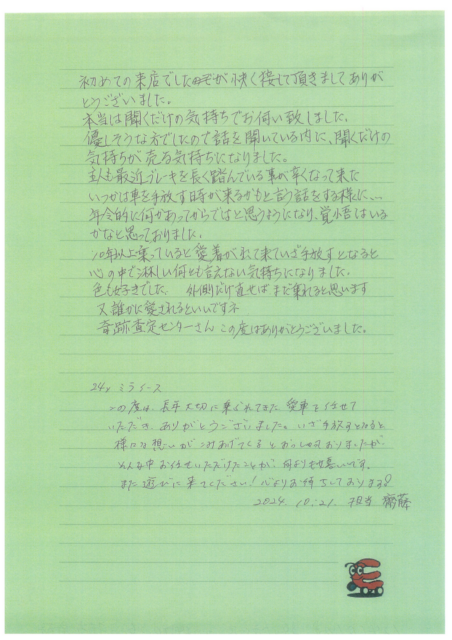 初めての来店でしたが快く接して頂きましてありが
とうございました。
本当は聞くだけの気持ちでお伺い致しました。
優しそうな方でしたので話を聞いている内に、聞くだけの
気持ちが売る気持ちになりました。
主人も最近ブレーキを長く踏んでいる事が多くなって来た
いつかは車を手放す時が来るかもと言う話をする様に、、
年令的に何かあってからではと思うようになり、覚悟はいる
かなと思っておりました。
10年以上乗っていると愛着がわれて来ていざ手放すとなると
心の中で淋しい何とも言えない気持ちになりました。
色も好きでした 外側だけ直せばまだ乗れると思います
又誰かに愛されるといいですネ
奇跡査定センターさんこの度はありがとうございました。
24y ミライース
この度は、長年大切に乗られてきた愛車をお任せ
いただき、ありがとうございました。いざ手放すとなると
様々な想いがこみあげてくるとおっしゃっておりましたが、
そんな中お任せいただけたことが、何よりも幸いです。
また遊びに来てください!心よりお待ちしております!
2024.10.21. 担当 齋藤